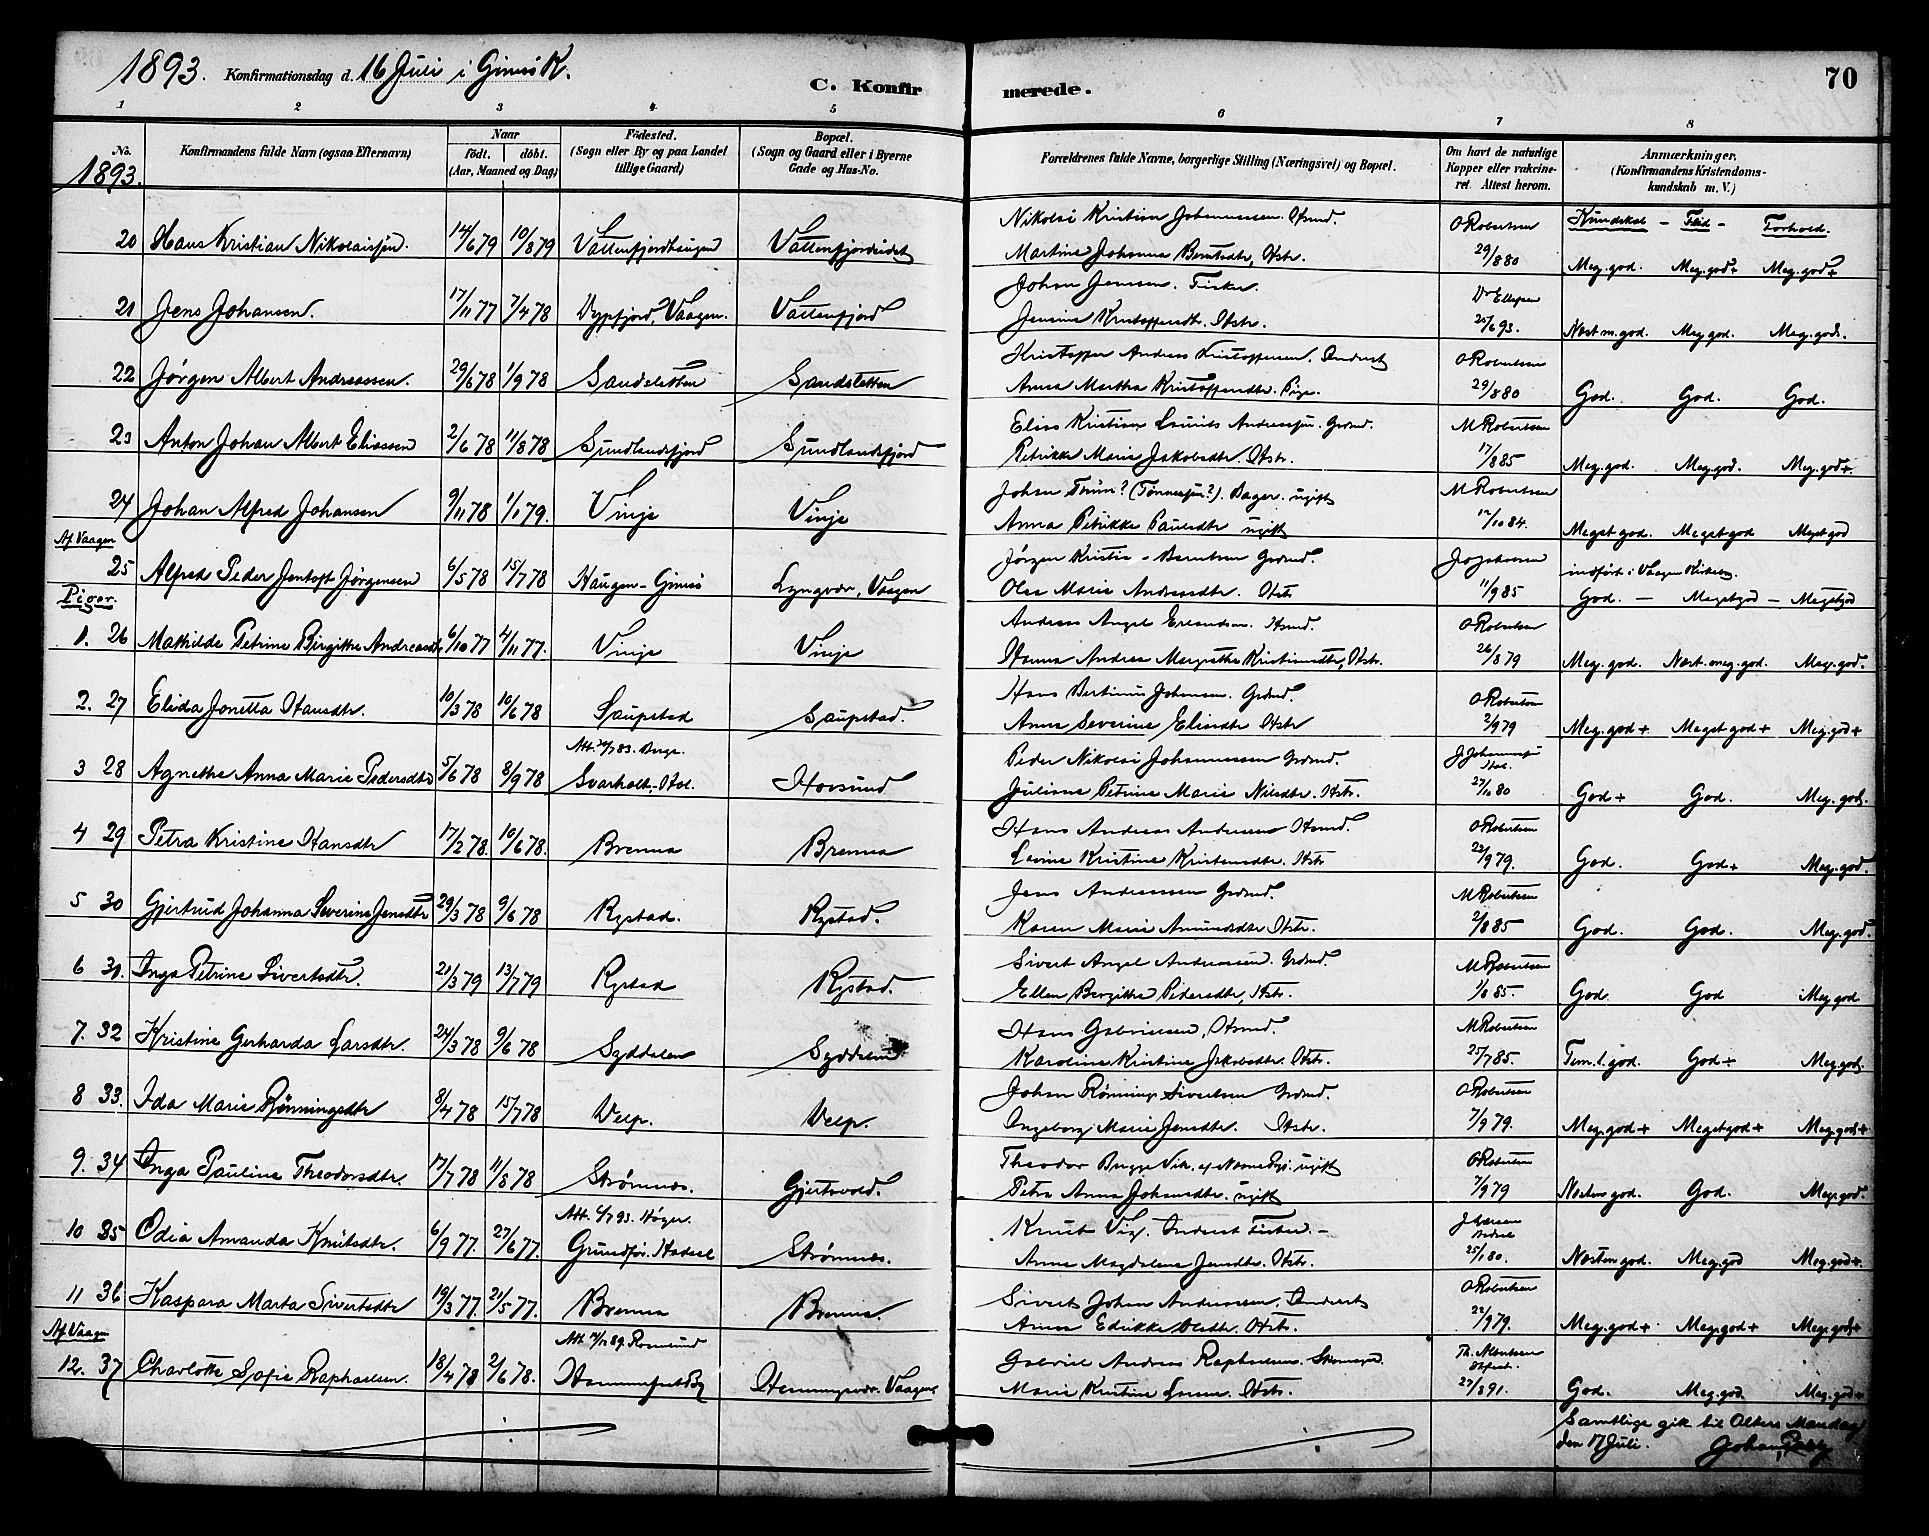 1893. Konfirmationsdag d. 16 Juli i Gimsö K.
C. Konfirmerede.
70
1 2 3 4 5 6 7 8
No.
Konfirmandens fulde Navn (ogsaa Efternavn)
Naar
födt. döbt.
(Aar, Maaned og Dag)
Födested.
(Sogn eller By og paa Landet
tillige Gaard)
Bopæl.
(Sogn og Gaard eller i Byerne
Gade og Hus-No.
Forældrenes fulde Navne, borgerlige Stilling (Næringsvei) og Bopæl.
Om havt de naturlige
Kopper eller vakcine-
ret. Attest herom.
Anmærkninger,
(Konfirmandens Kristendoms-
kundskab m. V.)
1893.
Kundskab - Flid - Forhold.
20 Hans Kristian Nikolaisön. 14/6 79 10/8 79 Vattenfjordhaugen Vattenfjordeidet
Nikolai Kristian Johannessen. Hsmd.
Martine Johanna Berntsdtr, Hstr.
O Robertsen 29/8 80 Meg. god. Meg. god+ Meg. god+
21 Jens Johansen. 17/11 77 7/4 78 Dypfjord, Vaagen. Vattenfjord
Johan Jensen. Fisker.
Jensine Kristoffersdtr. Hstr.
Dr Ellefsen 25/6 93. Næst m. god. Meg. god. Meg. god.
22 Jörgen Albert Andreassen. 29/6 78 1/9 78 Sandsletten Sandsletten
Kristoffer Andreas Kristoffersen. Inderst
Anna Martha Kristoffersdtr. Pige.
O Robertsen 29/8 80 God. God. God.
23 Anton Johan Albert Eliassen 2/6 78 11/8 78 Sundlandsfjord Sundlandsfjord
Elias Kristian Laurits Andreassen. Grdmd.
Petrikke Marie Jakobsdtr. Hstr.
M Robertsen 17/8 85 Meg. god. Meg. god. Meg. god+.
24 Johan Alfred Johansen 9/11 78 1/1 79. Vinje Vinje
Johan Thun? (Tönnesen?). Bager. ugift
Anna Petrikke Paulsdtr ugift
M Robertsen 12/10 84. Meget god. Meget god Meget god
Af Vaagen
25 Alfred Peder Jentoft Jörgensen 6/5 78 15/7 78 Haugen - Gimsö Lyngvær, Vaagen
Jörgen Kristia - Berntsen Grdmd.
Olea Marie Andreasdtr. Hstr
11/9 85 indfört i Vaagen Kirkebog.
God. - Meget god - Meget god
Piger.
1. 26 Mathilde Petrine Birgitte Andreasdtr 6/10 77 4/11 77. Vinje Vinje
Andreas Angel Erlandsen. Hsmd.
Hanna Andrea Margrethe Kristiansdtr, Hstr.
O Robertsen 26/8 79 Meg. god. Næst. meg. god. Meg. god.
2. 27 Elida Jonetta Hansdtr. 10/3 78 10/6 78 Saupstad Saupstad.
Hans Bertinus Johansen. Grdmd.
Anna Severine Eliasdtr Hstr
O Robertsen 2/9 79 Meg. god+ Meget god+ Meg. god+
3 28 Agnethe Anna Marie Pedersdtr 5/6 78 8/9 78 Svarholt - Hol. Hovsund
Peder Nikolai Johannessen Grdmd.
Juliane Petrine Marie Nilsdtr. Hstr.
27/10 80 God+ God. Meg. god.
4 29 Petra Kristine Hansdtr 17/2 78. 10/6 78. Brenna Brenna
Hans Andreas Andersen Hsmd.
Lovine Kristine Kristensdtr. Hstr
O Robertsen 22/9 79. God. God+ Meg. god.
5 30 Gjertrud Johanna Severine Jensdtr 29/3 78 9/6 78 Rystad. Rystad.
Jens Andreassen Grdmd.
Karen Marie Amundsdtr Hstr.
M Robertsen 2/8 85 God. God. Meg. god.
6 31. Inga Petrine Sivertsdtr. 21/3 79 13/7 79 Rystad Rystad.
Sivert Angel Andreassen. Grdmd.
Ellen Birgitte Pedersdtr, Hstr.
M Robertsen 1/8 85. God. God Meg god
7. 32 Kristine Gerharda Larsdtr. 24/3 78 9/6 78 Syddalen Syddalen
Hans Gabrielsen, Hsmd.
Karoline Kristine Jakobsdtr. Hstr.
M Robertsen 25/7 85. Tem. l. god. God÷ Meg. god.
8 33. Ida Marie Rönningsdtr 8/4 78 15/7 78 Velp. Velp.
Johan Rönning Sivertsen Grdmd.
Ingeborg Marie Jensdtr. Hstr.
O Robertsen 7/9 79. Meg. god+ Meget god+ Meg. god+
9. 34 Inga Pauline Theodorsdtr. 17/7 78 11/8 78 Strömnes. Gjertsvold.
Theodor Bugge Vik. ugift
Petra Anna Johansdtr. ugift
O Robertsen 7/9 79 Næsten god. God. Meg. god.
10 35 Odia Amanda Knutsdtr. 6/9 77. 27/6 77. Grundför. Hadsel Strömnes.
Knut Vig. Inderst Fisker. -
Anne Magdalene Jensdtr. Hstr.
25/1 80. Næsten god. Meg. god Meg. god+.
11 36 Kaspara Marta Sivertsdtr 19/3 77. 21/5 77. Brenna Brenna.
Sivert Johan Andreassen, Inderst
Anna Edrikke Olsdtr. Hstr.
O Robertsen 22/9 79. Meg. god+. Meg. god+ Meg. god+
Af Vaagen
12. 37 Charlotte Sofie Raphaelsen. 18/4 78 2/6 78. Hammerfest By Henningsvær. Vaagen
Gabriel Andreas Raphaelsen. Skomager
Marie Kristine Larsen. Hstr.
Th. Albertsen 27/8 91. God. Meg. god. Meg. god+
Samtlige gik til Alters Mandag
den 17 Juli.